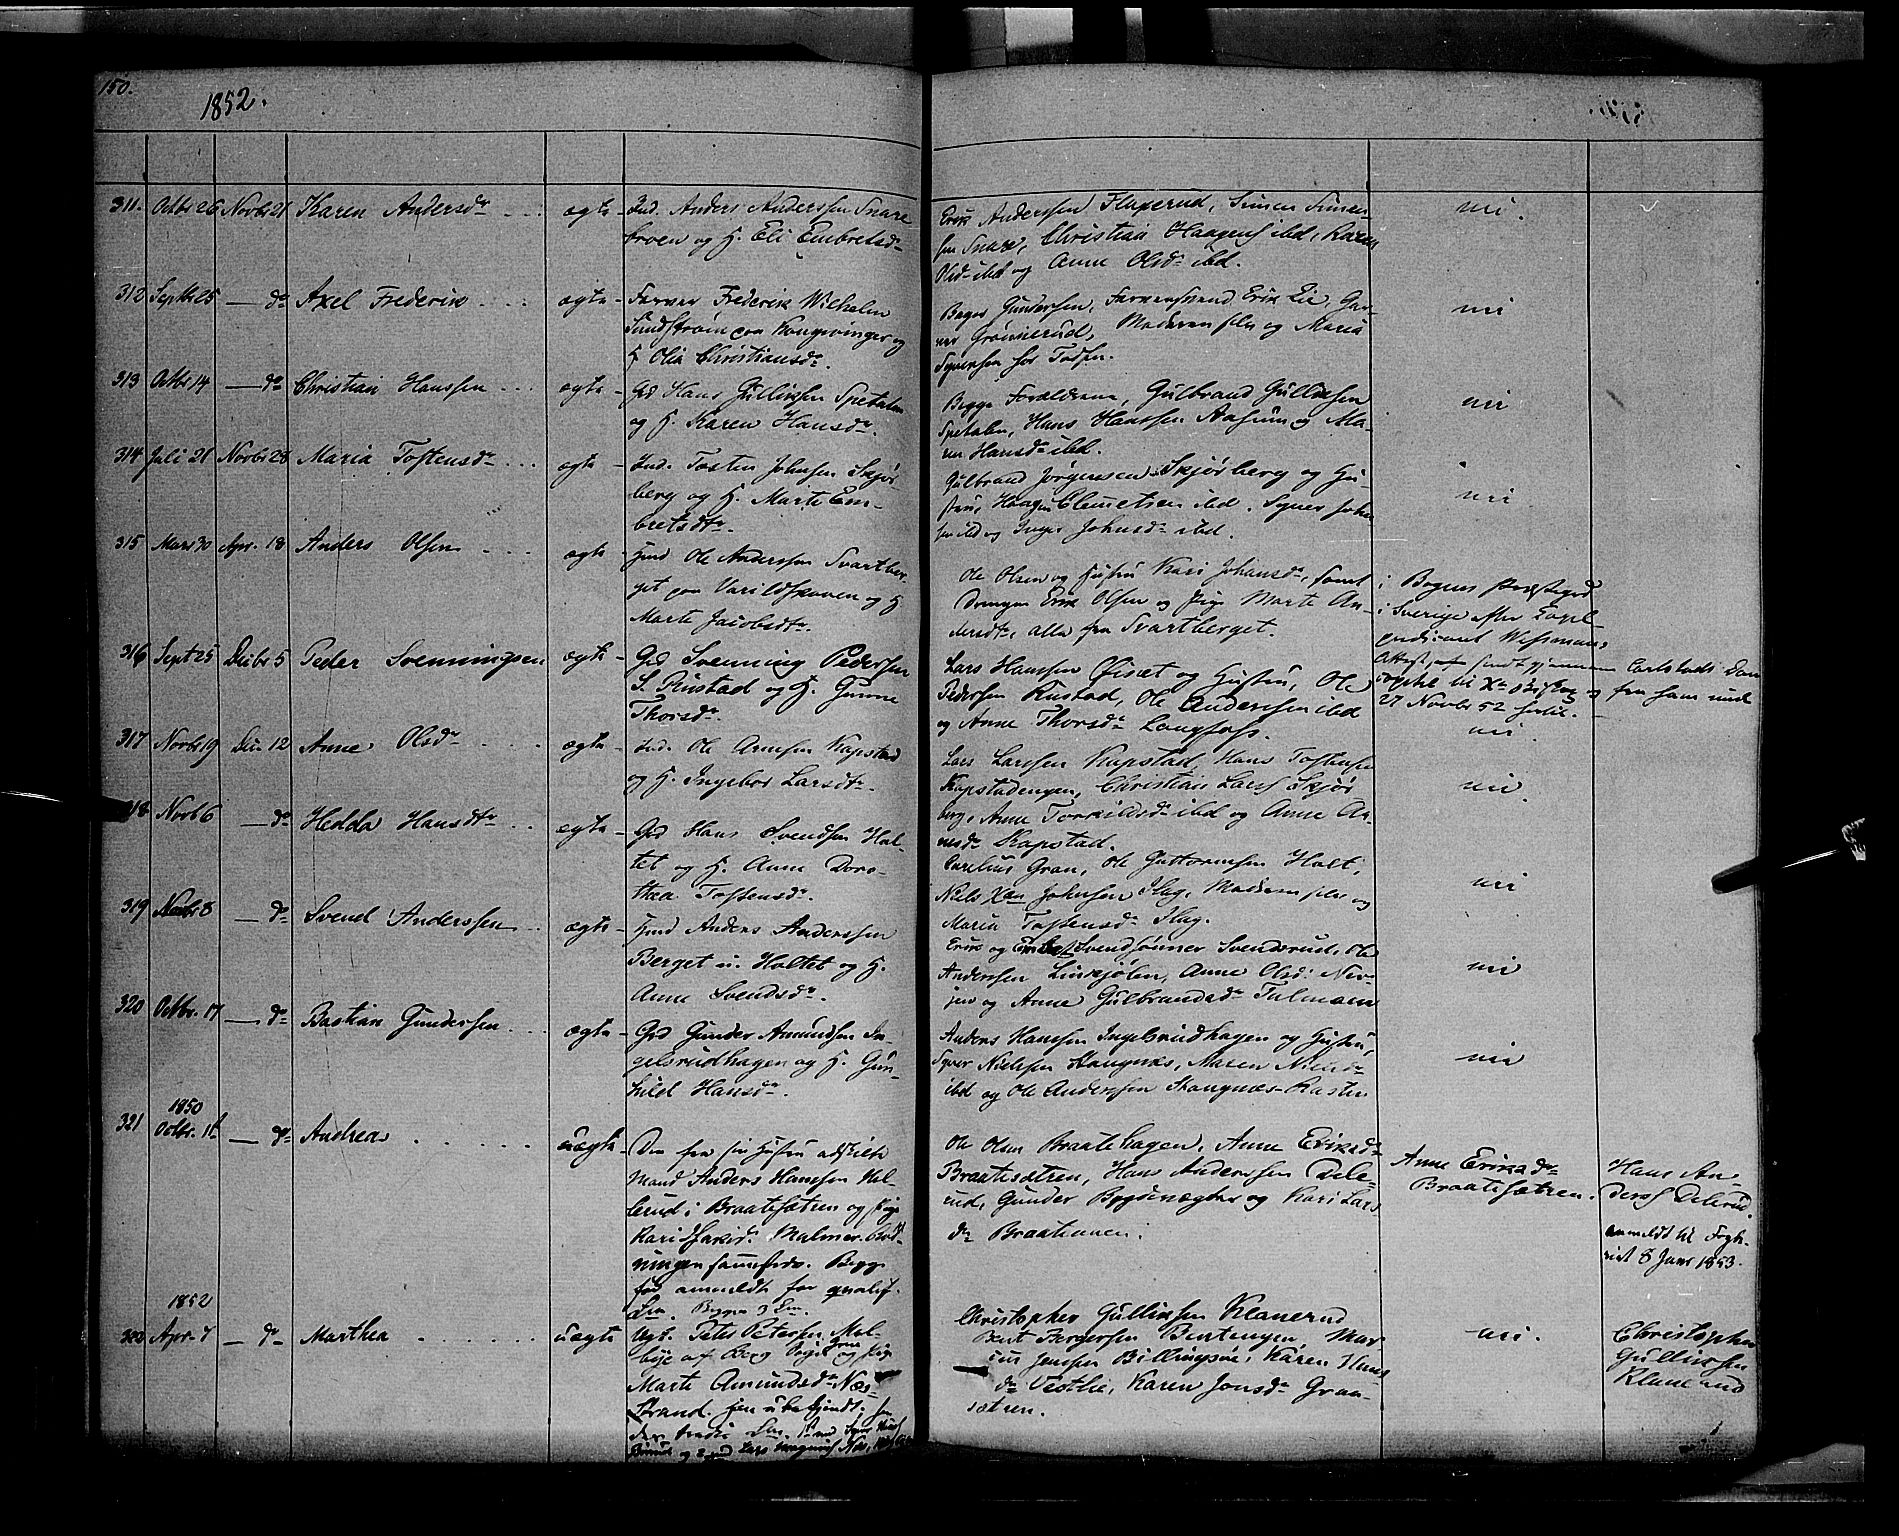 150.
1852.
311. Octbr 26 Novbr 21 Karen Andersdr ægte Ind. Anders Anderssen Snare
broen og H. Eli Embretsdr
Erik Anderssen Flaperud, Simen Simen-
sen Snare, Christian Haagens ibd, Karen
Olsdr ibd og Anne Olsdr ibd.
nei.
312 Septbr 25 — do Axel Frederik ægte Farver Frederik Wilhelm
Sundstrøm paa Kongsvinger og
H Olia Christiansdr.
Bager Gundersen, Farversvend Erik Lie, Gar-
ver Grønnerud, Madam og Maria
Syversen
nei
313 Octbr 14 — do Christian Hanssen ægte Grd Hans Gullixsen Spetalen
og H. Karen Hansdr.
Begge Forældrene, Gulbrand Gullixsen
Spetalen, Hans Hanssen Aasum og Ma-
ren Hansdr ibd.
nei
314 Juli 21 Novbr 28 Maria Tostensdr ægte Ind. Tosten Johnsen Skjør
berg og H. Marte Em-
bretsdtr.
Gulbrand Jørgensen Skjørberg og Hu-
stru, Haagen Clemetsen ibd. Syver John
sen ibd og Inger Johnsdr ibd.
nei
315 Mars 30 Apr. 18 Anders Olsen ægte Hmd Ole Anderssen Svartber-
get paa Varildskoven og H.
Marte Jacobsdtr.
Ole Olsen og Hustru Kari Johansdr, samt
Drengen Erik Olsen og Pige Marte An-
dersdtr, alle fra Svartberget.
i Bogens Præstegjeld
i Sverige efter
Wessmans
Attest, sendt gjennem Carlstads Dom
27 Novbr 52 fra ham med
316 Sept 25 Decbr 5 Peder Svenningsen ægte Grd Svenning Pedersen
S. Rustad og H. Gunne
Thorsdr.
Lars Hansen Øiset og Hustru, Ole
Pedersen Rustad, Ole Anderssen ibd
og Anne Thorsdr Langfoss.
nei.
317 Novbr 19 Dec. 12 Anne Olsdr ægte Ind. Ole Arnesen Kapstad
og H. Ingebor Larsdtr.
Lars Larssen Kapstad, Hans Tostensen
Kapstadengen, Christian Lars Skjør
berg, Anne Torkildsdr ibd og Anne Ar-
nesdr Kapstad.
nei.
318 Novb 6 — do Hedda Hansdtr ægte Grd Hans Svendsen Hol-
tet og H. Anne Doro-
thea Tostensdr.
Carelius Gran, Ole Guttormsen Holt,
Niels Xan Johnsen Hag, Madam og
Maria Tostensdr Hag.
nei
319 Novbr 8 — do Svend Anderssen ægte Hmd Anders Anderssen
Berget u. Holtet og H.
Anne Svendsdr.
Erik og Embret Svendsønner Svendsrud, Ole
Anderssen Linkjølen, Anne Olsd:
og Anne Gulbrandsdr Tulmoen
nei
320 Octbr. 17 — do Bastian Gundersen ægte Grd Gunder Amundsen In-
gelsrudhagen og H. Gun-
hild Hansdr.
Anders Hanssen Ingelsrudhagen og Hustru,
Syver Nielsen Stangnæs, Maren Nielsdr
ibd og Ole Anderssen Stangnæs-Kasten
nei
1850
321 Octbr. 11 — do Andrea uægte Den fra sin Hustru adskilte
Mand Anders Hanssen Kol-
berud i Braatesætren og Pige
Kari Malmer
sammesteds. Begge
før anmeldte for
Begges 3 Lm.
Ole Olsen Braatehagen, Anne Eriksdr
Braatesætren, Hans Anderssen Dele-
rud, Gunder Bygdevægter og Kari Lars-
dr Braatmoen.
Anne Eriksdr
Braatesætren.
Hans An-
derss Delerud.
anmeldt til Fogde-
riet 8 Janr 1853.
1852
322 Apr. 7 — do Marthea uægte Ugk. Peter Petersen Mel-
bye af og Pige
Marte Amundsdr Næs-
Strand.
Christopher Gullixsen Klanerud
Bent Bergersen Bentengen, Mar-
ius Jenssen Billingsøe, Karen Hans
dr Vestlie, Karen Jonsdr Gran-
sætren.
nei.
Christopher
Gullixsen
Klanerud